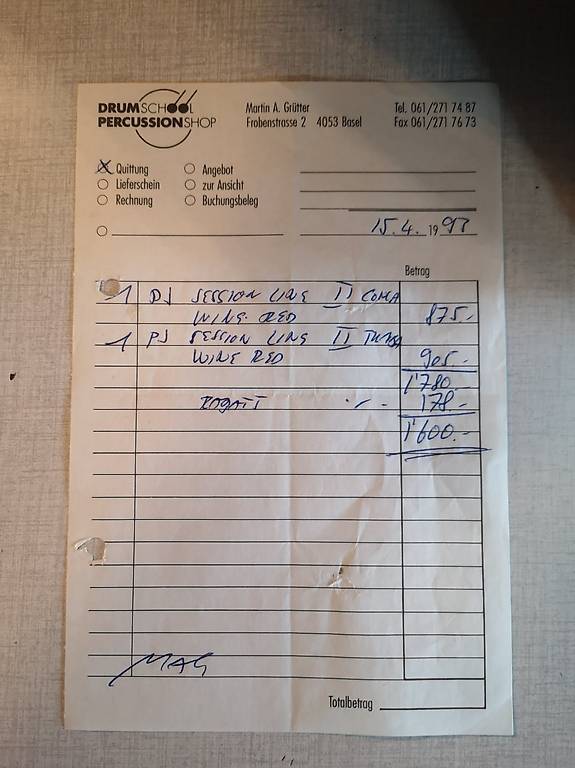 DRUMSCHOOL
PERCUSSIONSHOP
Martin A. Grütter
Frobenstrasse 2 4053 Basel
Tel. 061/271 74 87
Fax 061/271 76 73
X Quittung
Lieferschein
Rechnung
Angebot
zur Ansicht
Buchungsbeleg
15.4. 19
Betrag
1 SESSION LINE II
WINE RED 875.-
1 SESSION LINE II
WINE RED 905.-
1'780.-
RABATT 178.-
1'600.-
MAG
Totalbetrag